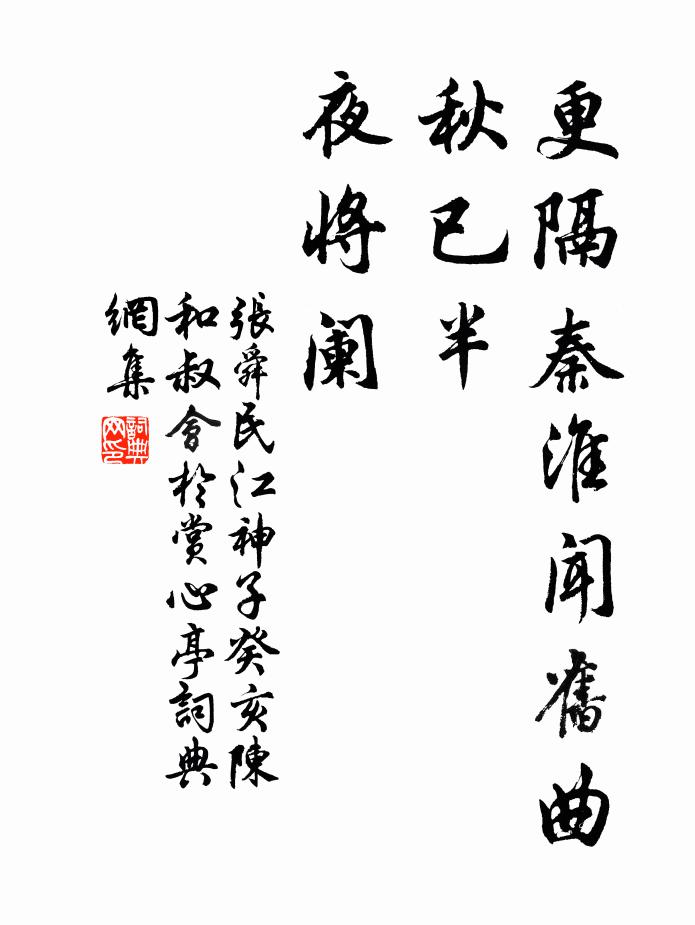 更隔秦淮聞舊曲
秋已半
夜將闌
張舜民江神子癸亥陳
和叔會於賞心亭詞典
網集
詞典
网印